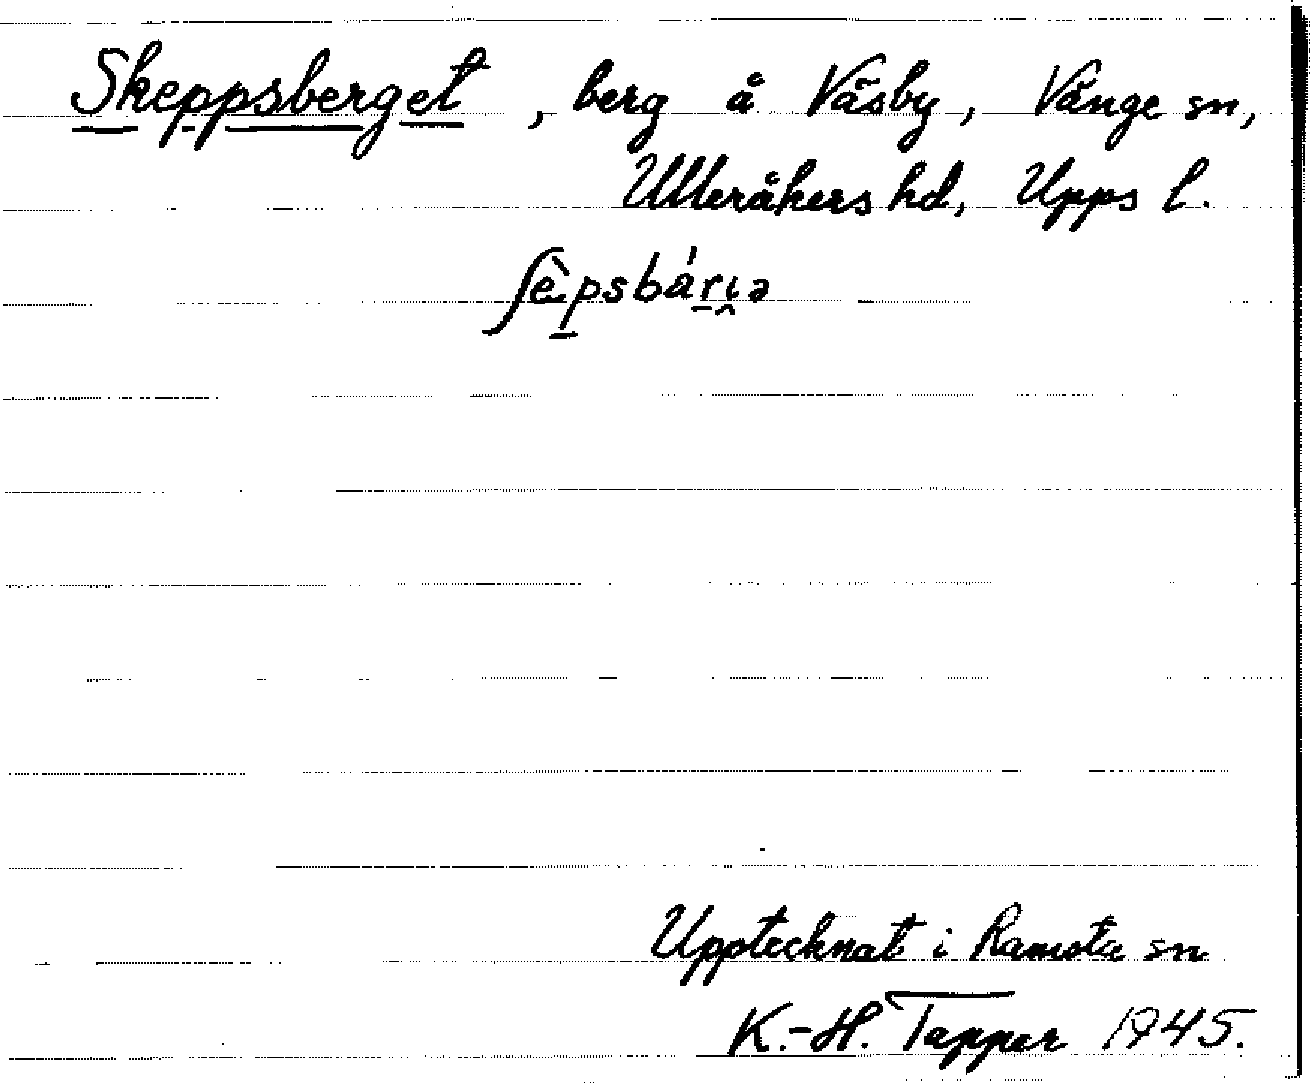 Skeppsberget, berg å Väsby, Vänge sn,
Ulleråkers hd, Upps l.
ʃè̱psbárɩ̯ə
Upptecknat i Ramsta sn
K.-H. Tapper 1945.